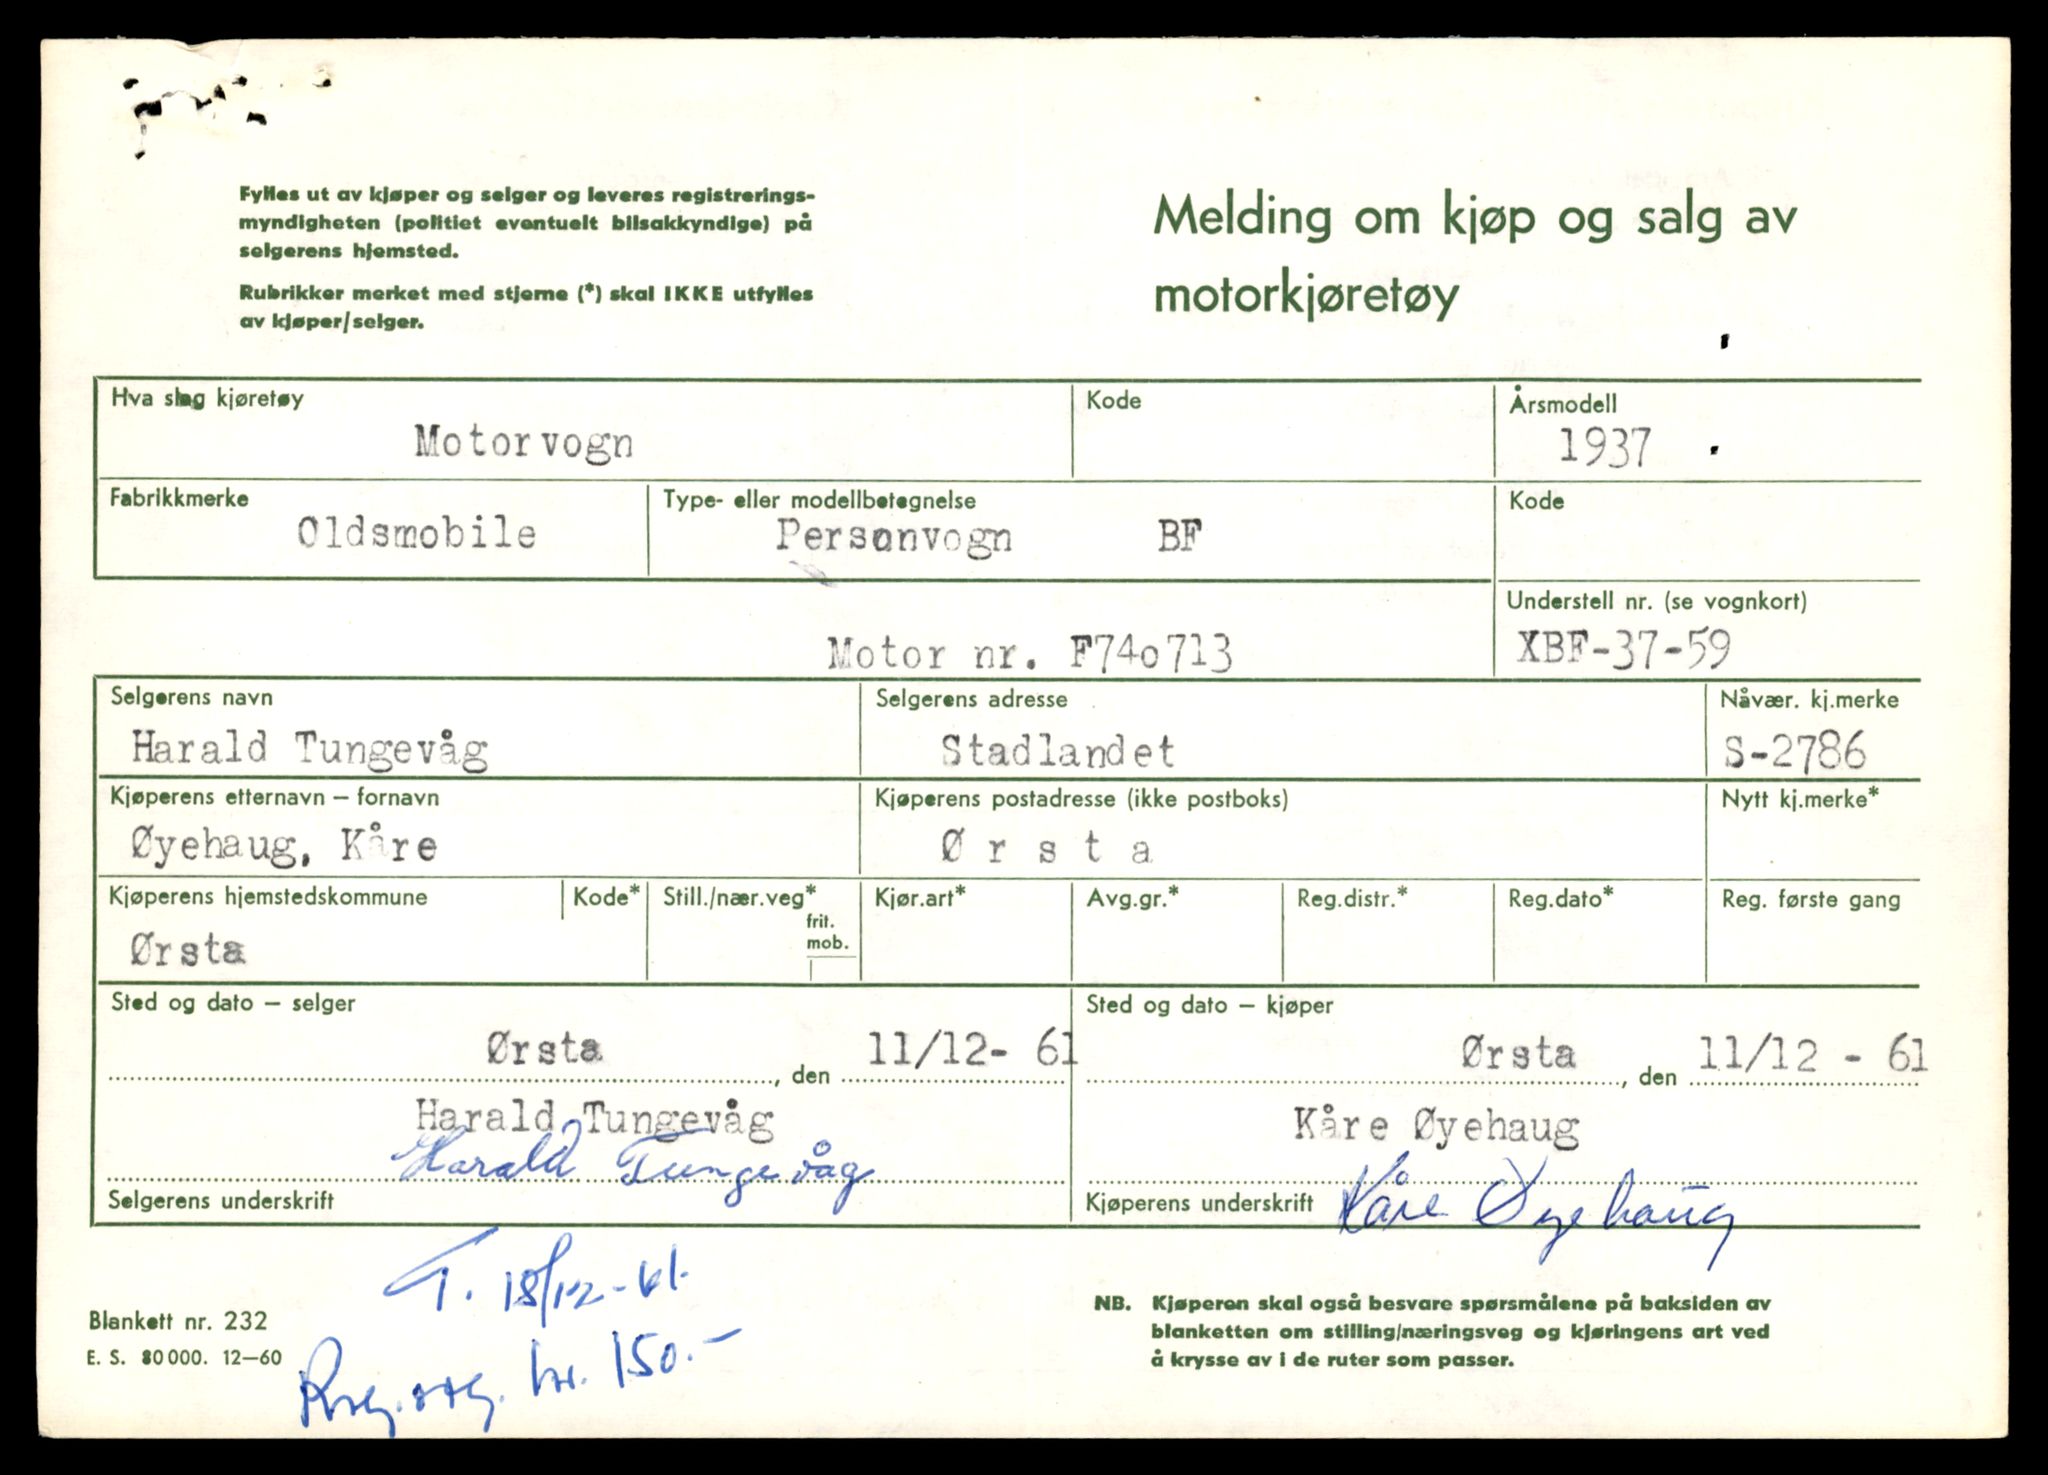 Fylles ut av kjøper og selger og leveres registrerings-
myndigheten (politiet eventuelt bilsakkyndige) på
selgerens hjemsted.
Rubrikker merket med stjerne (*) skal IKKE utfylles
av kjøper/selger.
Melding om kjøp og salg av
motorkjøretøy
Hva slag kjøretøy
Kode
Årsmodell
Motorvogn
1937
Fabrikkmerke
Type- eller modellbetegnelse
Kode
Oldsmobile
Personvogn BF
Understell nr. (se vognkort)
Motor nr. F740713
XBF-37-59
Selgerens navn
Selgerens adresse
Nåvær. kj.merke
Harald Tungevåg
Stadlandet
S-2786
Kjøperens etternavn – fornavn
Kjøperens postadresse (ikke postboks)
Nytt kj.merke*
Øyehaug, Kåre
Ø r s t a
Kjøperens hjemstedskommune
Kode*
Still./nær.veg*
frit.
mob.
Kjør.art*
Avg.gr.*
Reg.distr.*
Reg.dato*
Reg. første gang
Ørsta
Sted og dato – selger
Sted og dato – kjøper
Ørsta, den 11/12- 61
Ørsta, den 11/12 - 61
Harald Tungevåg
Kåre Øyehaug
Harald Tungevåg
Selgerens underskrift
Kjøperens underskrift Kåre Øyehaug
T. 18/12-61.
Blankett nr. 232
E. S. 80 000. 12–60
kr. 150.-
NB. Kjøperen skal også besvare spørsmålene på baksiden av
blanketten om stilling/næringsveg og kjøringens art ved
å krysse av i de ruter som passer.